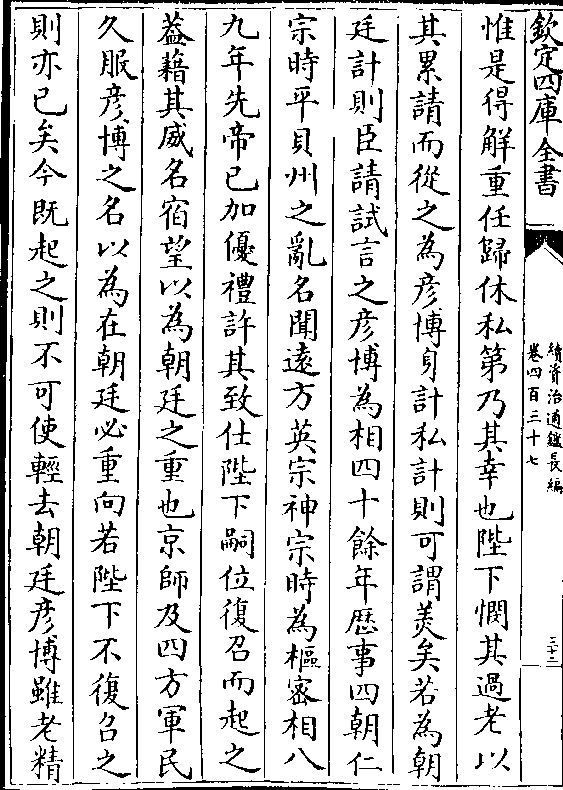 欽定四庫全書
續資治通鑑長編
卷四百三十七
三十三
惟是得解重任歸休私第乃其幸也陛下憫其過老以
其累請而從之為彦博身計私計則可謂美矣若為朝
廷計則臣請試言之彦博為相四十餘年歴事四朝仁
宗時平貝州之亂名聞遠方英宗神宗時為樞宻相八
九年先帝已加優禮許其致仕陛下嗣位復召而起之
葢藉其威名宿望以為朝廷之重也京師及四方軍民
久服彦博之名以為在朝廷必重向若陛下不復召之
則亦已矣今既起之則不可使輕去朝廷彦博雖老精